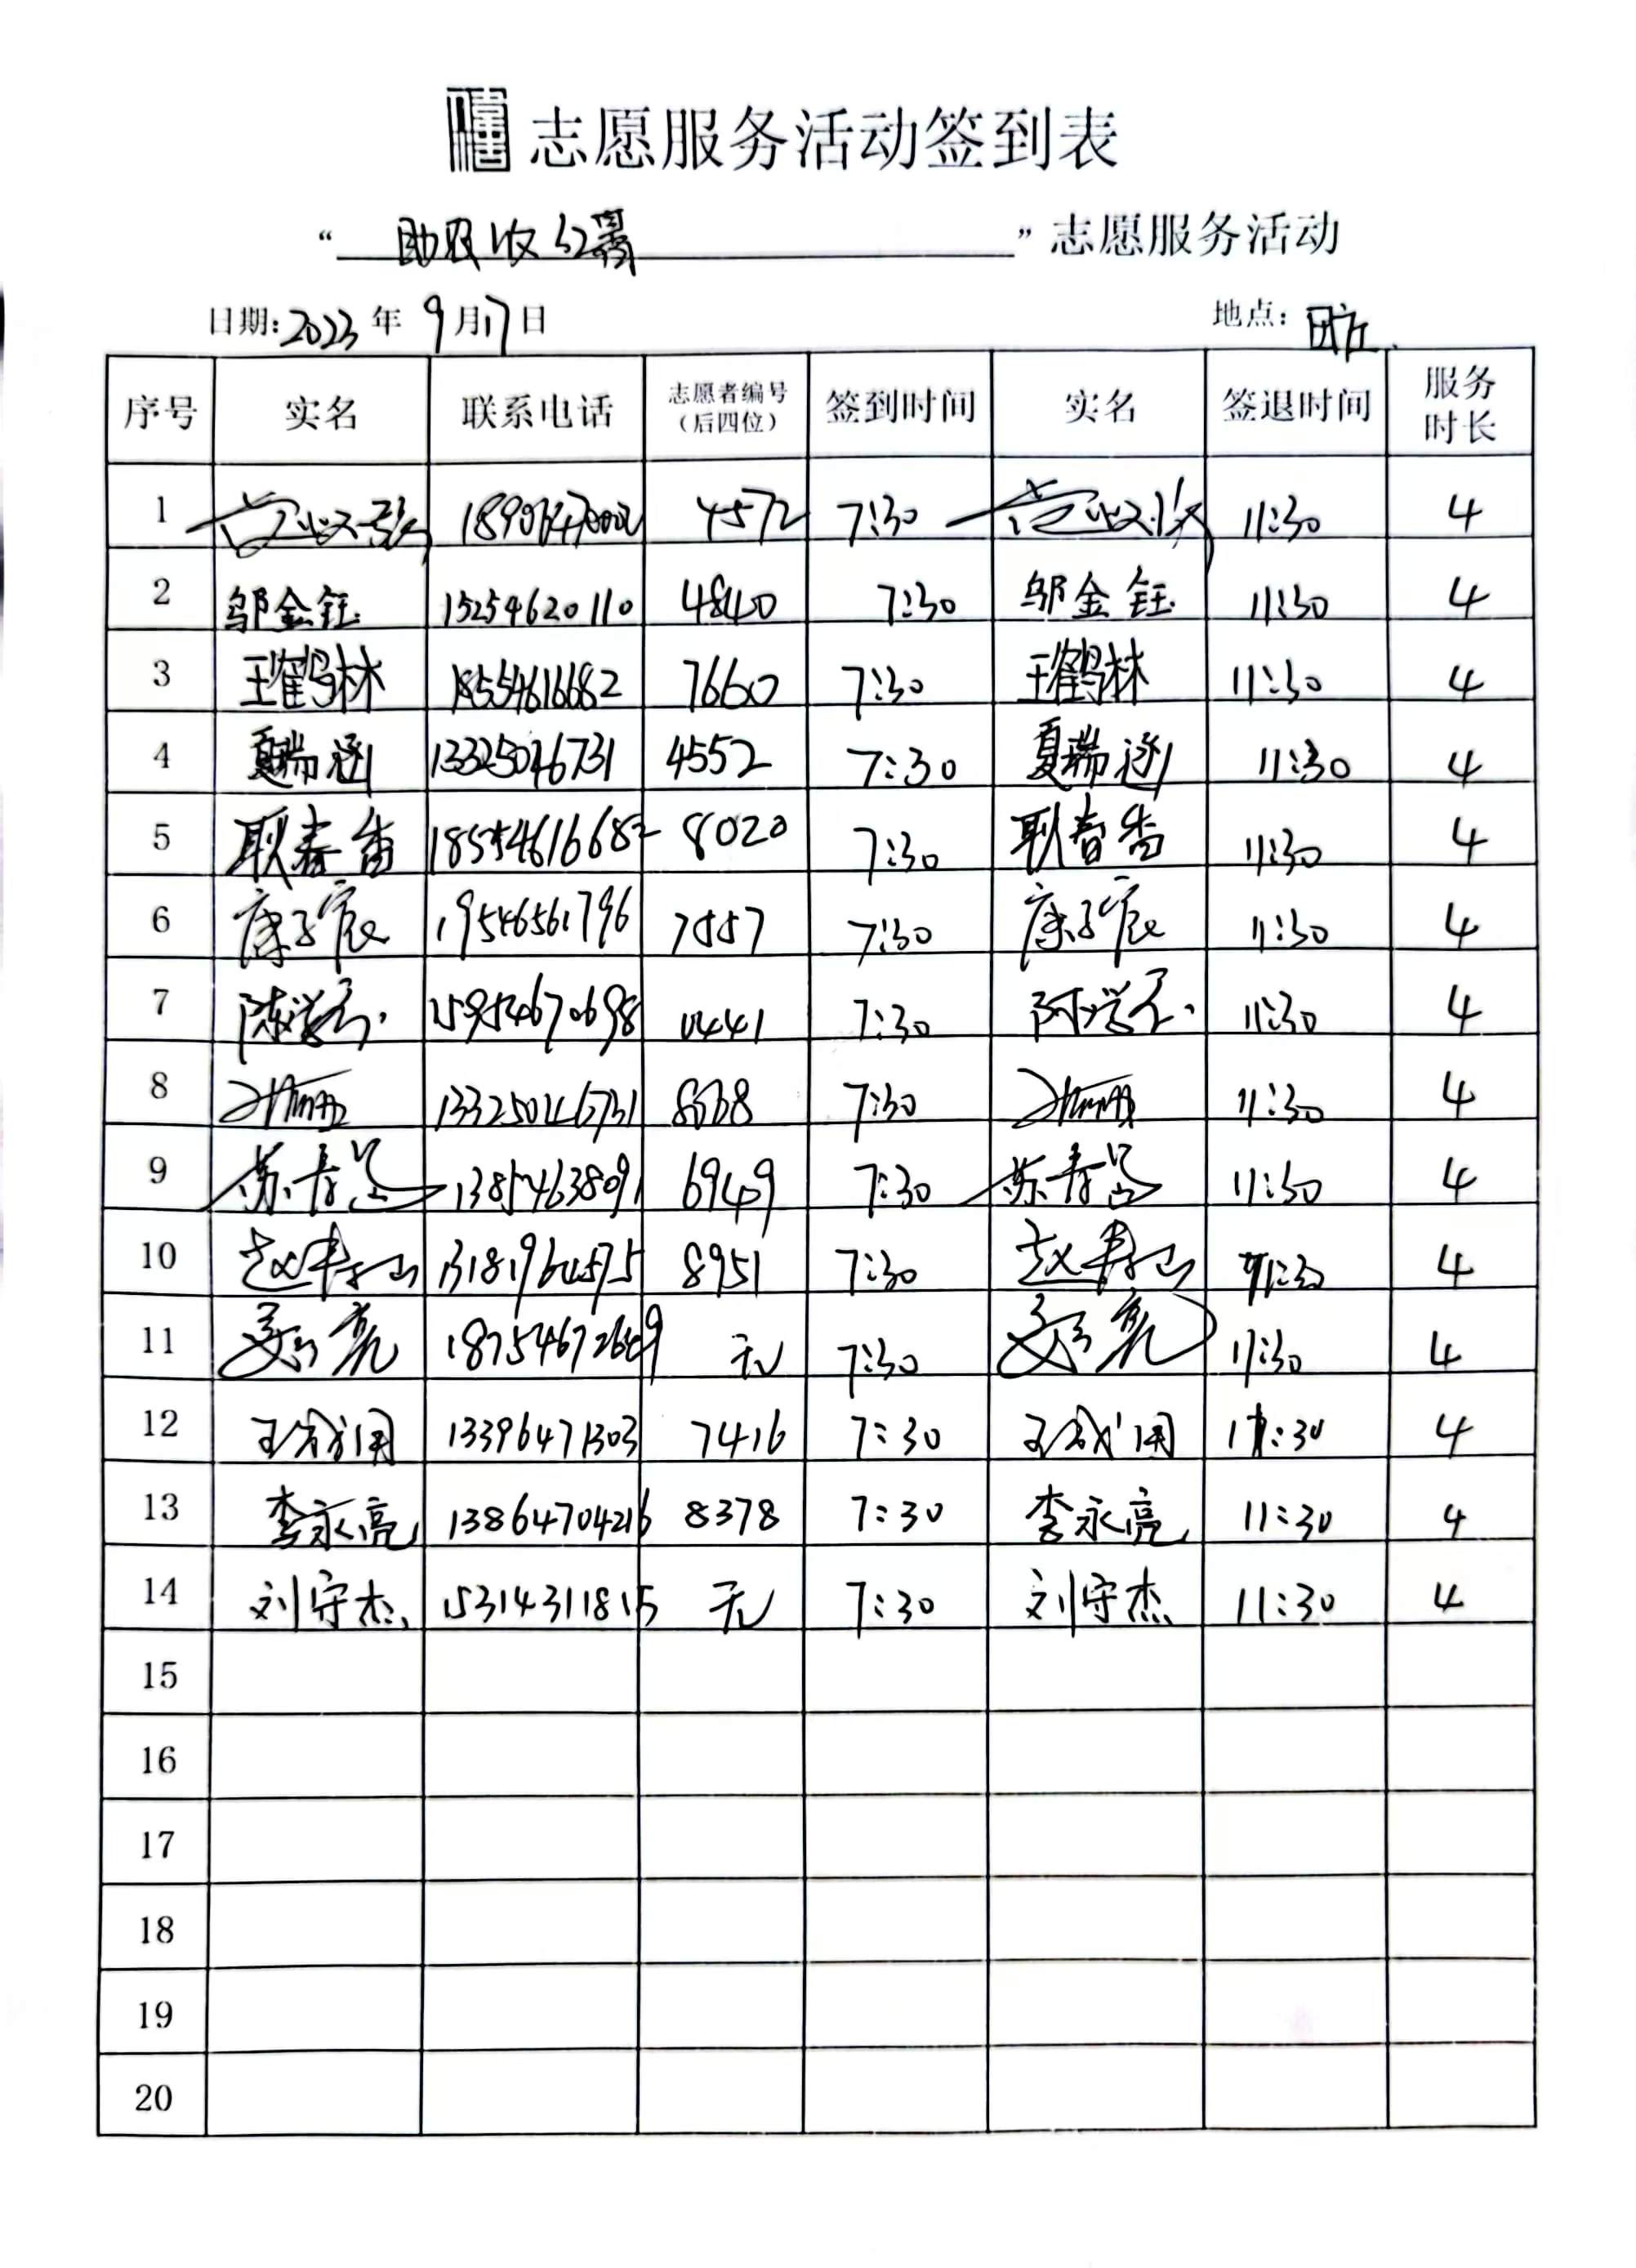 志愿服务活动签到表
“助农收红薯”志愿服务活动
日期:2023年9月17日 地点:
序号 实名 联系电话 志愿者编号(后四位) 签到时间 实名 签退时间 服务时长
1 4572 7:30 11:30 4
2 邹金钰 15254620110 4840 7:30 邹金钰 11:30 4
3 王鹤林 18554616682 7660 7:30 王鹤林 11:30 4
4 夏瑞涵 13325046731 4552 7:30 夏瑞涵 11:30 4
5 耿春香 18554616682 8020 7:30 耿春香 11:30 4
6 康子宸 19546561796 7557 7:30 康子宸 11:30 4
7 15954670698 0441 7:30 11:30 4
8 13325046731 7:30 11:30 4
9 13854638091 6949 7:30 11:30 4
10 赵寿山 8951 7:30 赵寿山 11:30 4
11 无 7:30 11:30 4
12 13396471303 7416 7:30 11:30 4
13 李永亮 13864704216 8378 7:30 李永亮 11:30 4
14 刘守杰 15314311815 无 7:30 刘守杰 11:30 4
15
16
17
18
19
20